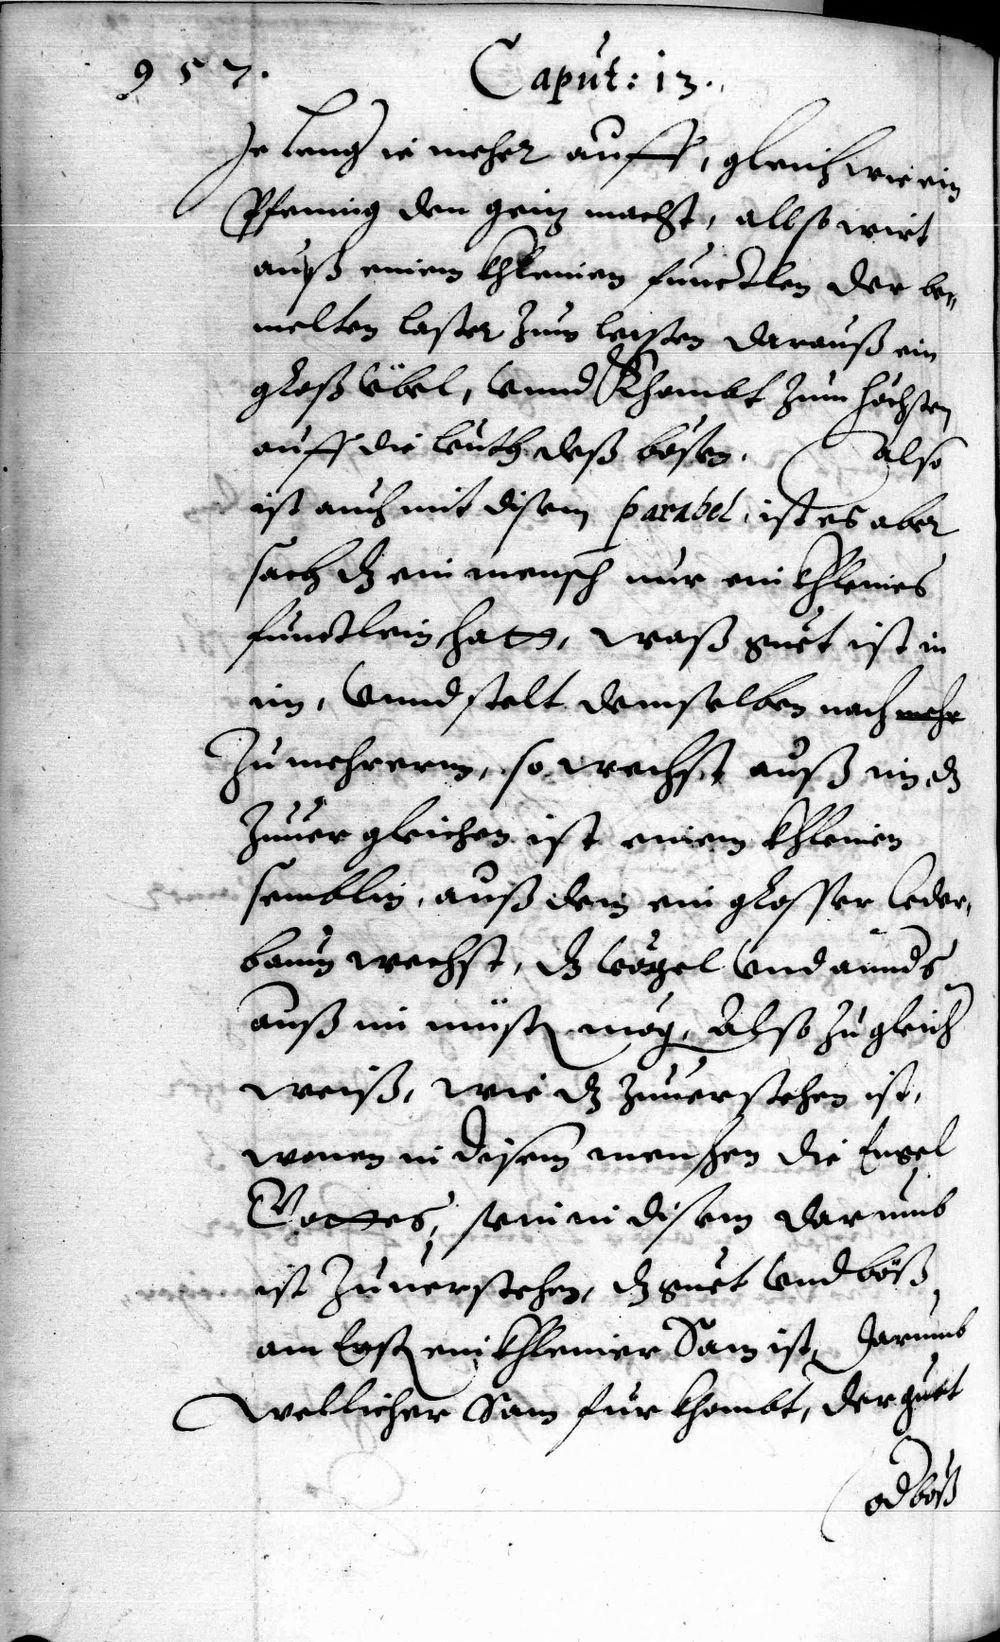 957. Caput: 13.
Je leng ie meher auff, gleich wie ein
Pfening den geitz macht, allso wirt
auß einem khleinen functlen der be„
melten laster zum lesten darauß ein
groß übel, vnnd khombt zum höchsten
auff die leuth deß bösen. Also
ist auch mit disem parabel, ist es aber
sach dz ein mensch nur ein khleines
functlein hatt, waß guet ist in
im, vnnd stelt demselben nach mehr
zu mehrerm, so wechst auß im dz
zuuergleichen ist einem khleinen
semblin, auß dem ein grosser Ceder„
baum wechst, dz vögel vnd annds
auß im nüsten mög. Also zu gleich
weiß, wie dz zuuerstehen ist,
wonen in disem menschen die Engel
Gottes, sein in disem darumb
ist zuuerstehen, dz guet vnd böß
am Erst ein khleiner Sam ist, darumb
wellicher Sam für khombt, der guet
od böß